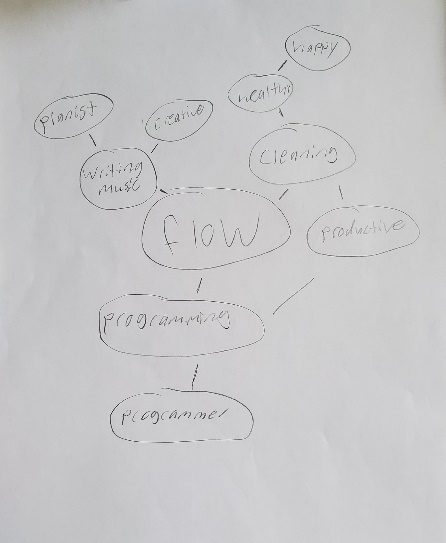 happy
healthy
pianist
creative
cleaning
writing
music
flow
productive
programming
programmer